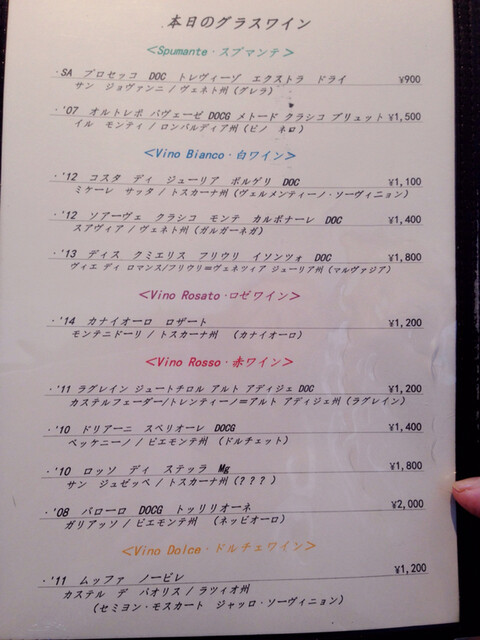 本日のグラスワイン
＜Spumante・スプマンテ＞
・SA プロセッコ DOC トレヴィーゾ エクストラ ドライ ¥900
サン ジョヴァンニ / ヴェネト州 (グレラ)
・'07 オルトレポ パヴェーゼ DOCG メトード クラシコ ブリュット ¥1,500
イル モンティ / ロンバルディア州 (ピノ ネロ)
＜Vino Bianco・白ワイン＞
・'12 コスタ ディ ジューリア ボルゲリ DOC ¥1,100
ミケーレ サッタ / トスカーナ州 (ヴェルメンティーノ・ソーヴィニョン)
・'12 ソアーヴェ クラシコ モンテ カルボナーレ DOC ¥1,400
スアヴィア / ヴェネト州 (ガルガーネガ)
・'13 ディス クミエリス フリウリ イソンツォ DOC ¥1,800
ヴィエ ディ ロマンス/フリウリ＝ヴェネツィア ジューリア州 (マルヴァジア)
＜Vino Rosato・ロゼワイン＞
・'14 カナイオーロ ロザート ¥1,200
モンテニドーリ / トスカーナ州 (カナイオーロ)
＜Vino Rosso・赤ワイン＞
・'11 ラグレイン ジュートチロル アルト アディジェ DOC ¥1,200
カステルフェーダー/トレンティーノ＝アルト アディジェ州 (ラグレイン)
・'10 ドリアーニ スペリオーレ DOCG ¥1,400
ペッケニーノ / ピエモンテ州 (ドルチェット)
・'10 ロッソ ディ ステッラ Mg ¥1,800
サン ジュゼッペ / トスカーナ州 (？？？)
・'08 バローロ DOCG トッリリオーネ ¥2,000
ガリアッソ / ピエモンテ州 (ネッビオーロ)
＜Vino Dolce・ドルチェワイン＞
・'11 ムッファ ノービレ ¥1,200
カステル デ パオリス / ラツィオ州
(セミヨン・モスカート ジャッロ・ソーヴィニョン)